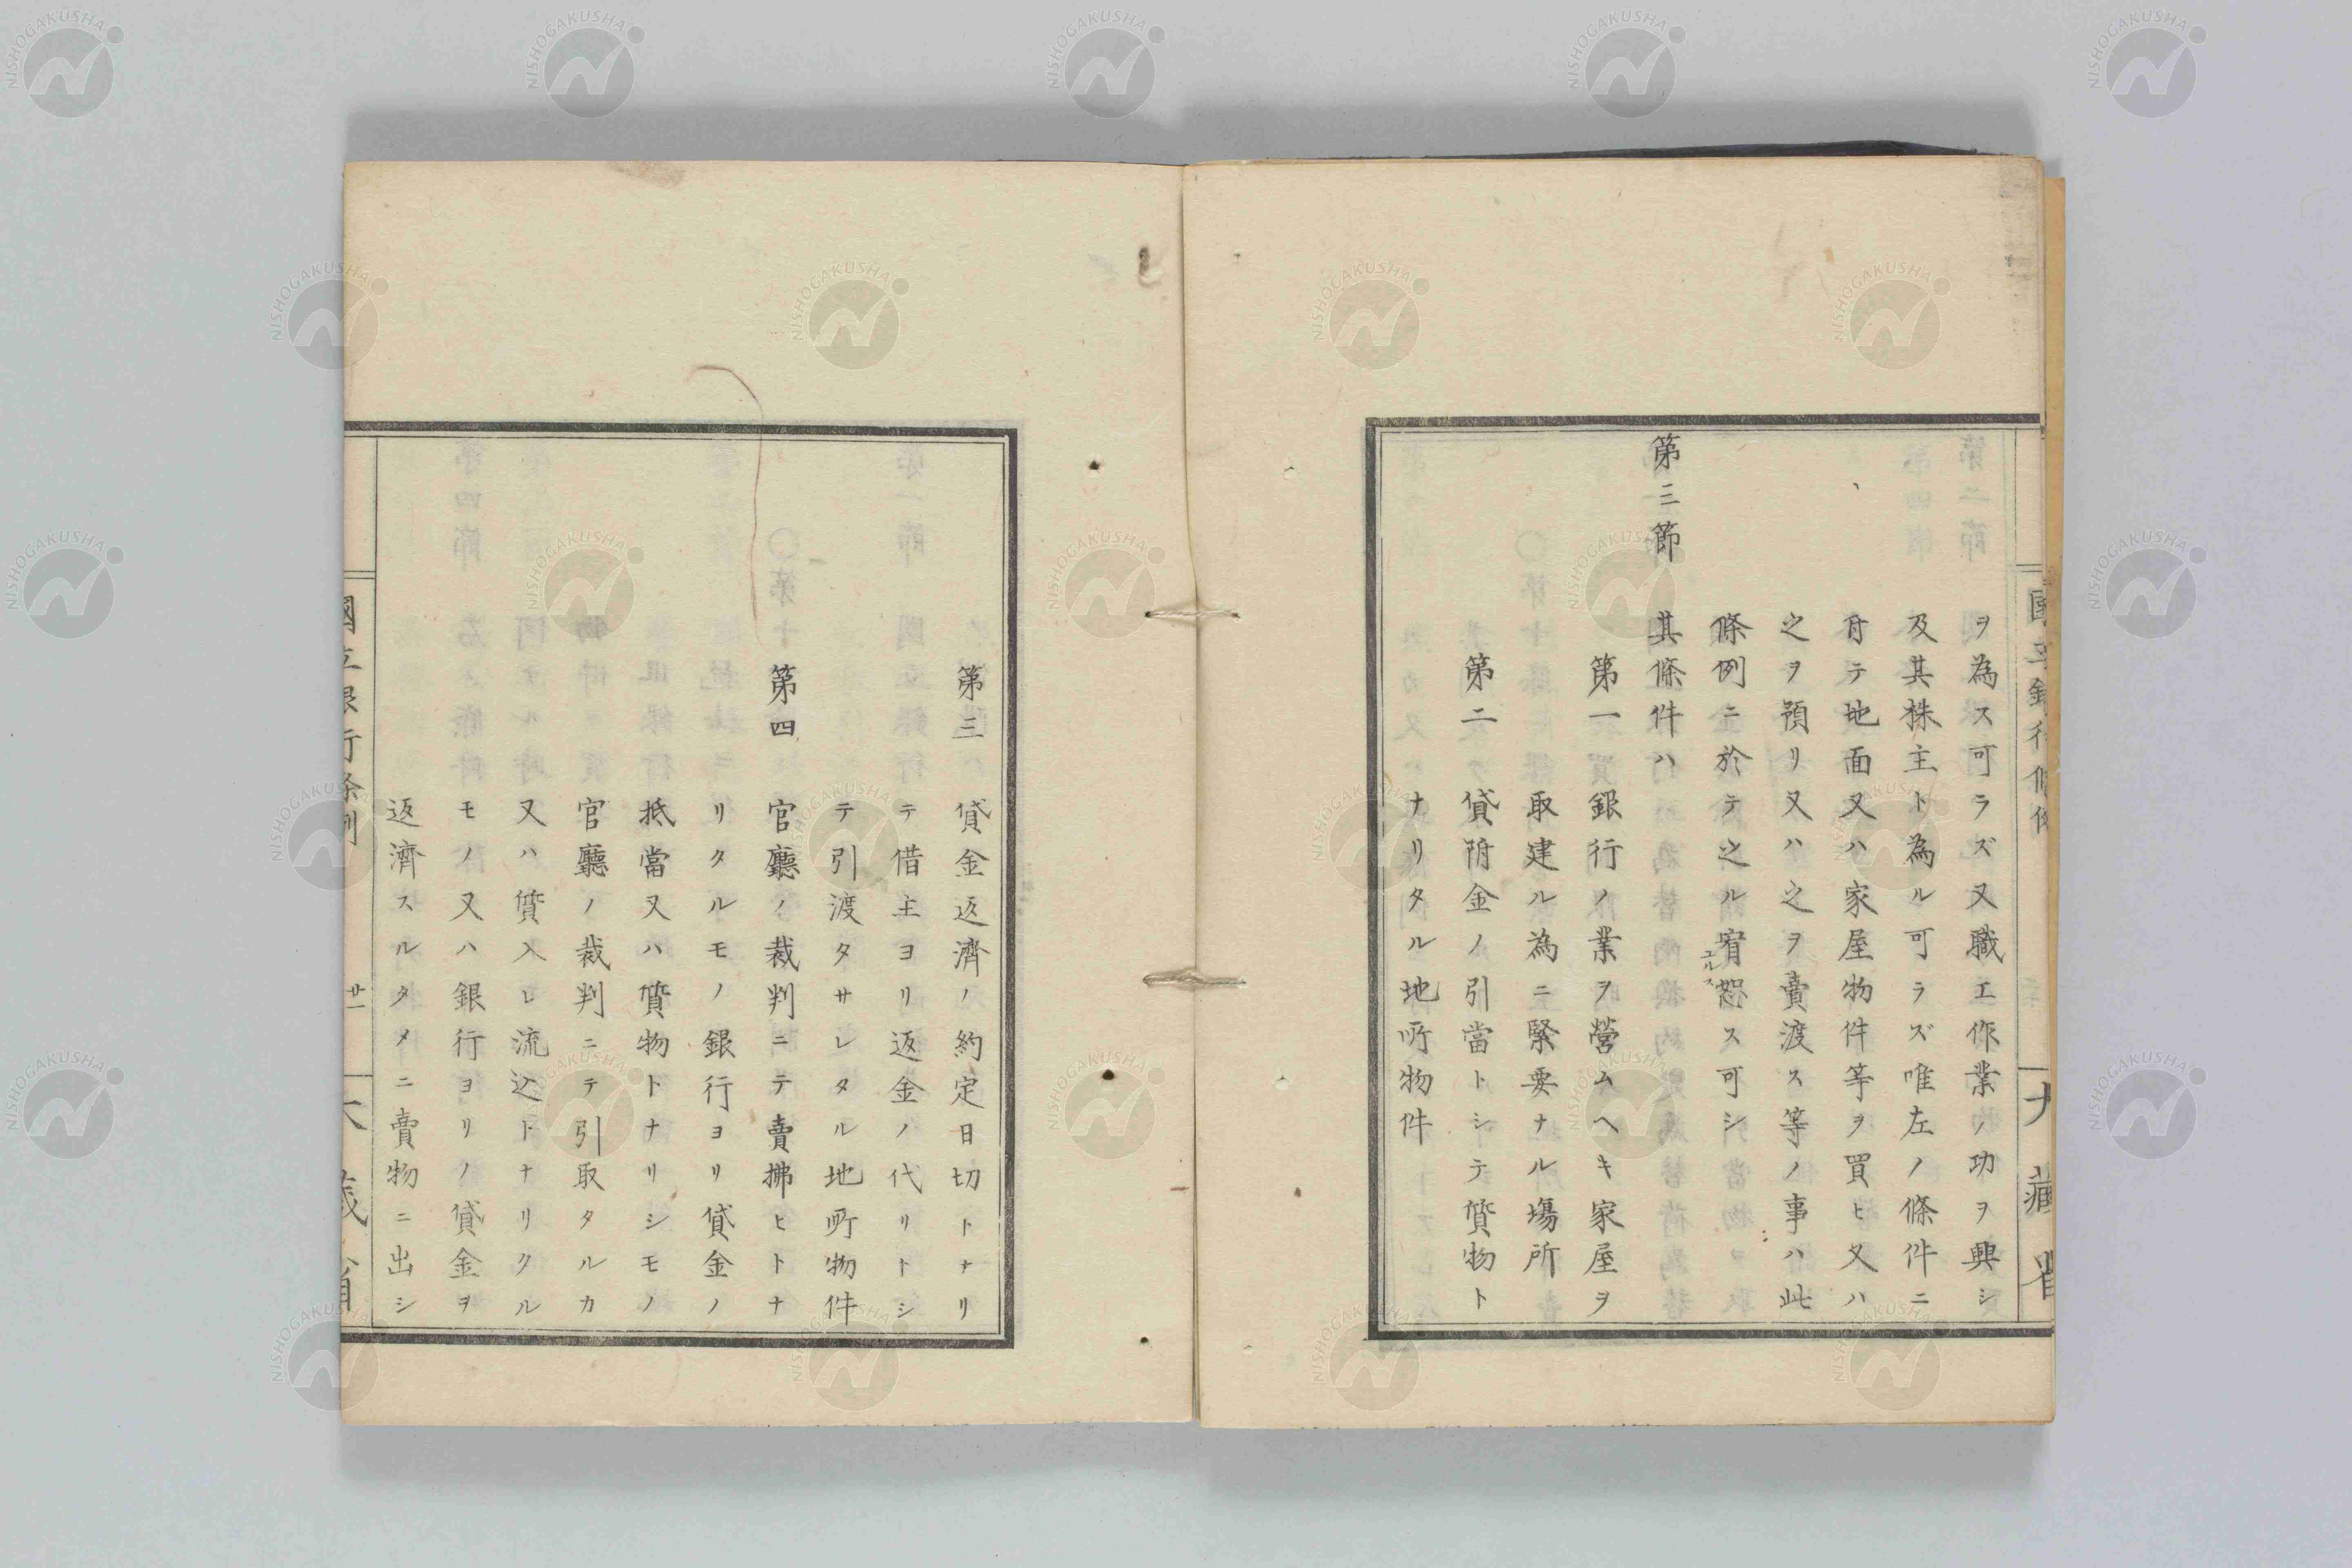 ヲ為ス可ラズ又職工作業ノ功ヲ興シ
及其株主ト為ル可ラズ唯左ノ條件ニ
付テ地面又ハ家屋物件等ヲ買ヒ又ハ
之ヲ預リ又ハ之ヲ賣渡ス等ノ事ハ此
條例ニ於テ之ル宥恕ス可シ
ユルス
第三節 其條件ハ
第一 銀行ノ業ヲ營ムヘキ家屋ヲ
取建ル為ニ緊要ナル場所
第二 貸附金ノ引當トシテ質物ト
ナリタル地所物件
第三 貸金返濟ノ約定日切トナリ
テ借主ヨリ返金ノ代リトシ
テ引渡タサレタル地所物件
第四 官廳ノ裁判ニテ賣拂ヒトナ
リタルモノ銀行ヨリ貸金ノ
抵當又ハ質物トナリシモノ
官廳ノ裁判ニテ引取タルカ
又ハ質入レ流込トナリタル
モノ又ハ銀行ヨリノ貸金ヲ
返濟スルタメニ賣物ニ出シ
國立銀行條例
廿一
大藏省
NISHOGAKUSHA